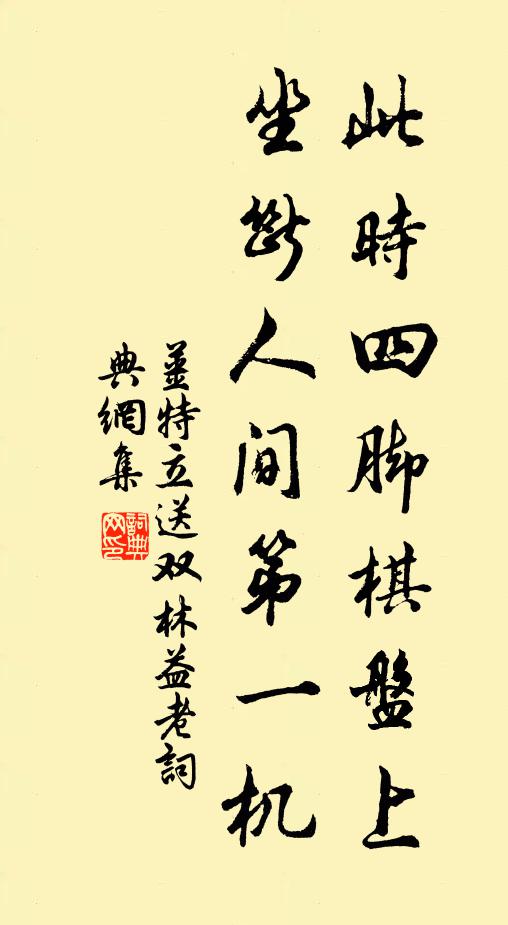 此時四脚棋盤上
坐斷人间第一机
姜特立送双林益老詞
典網集
詞典
网印